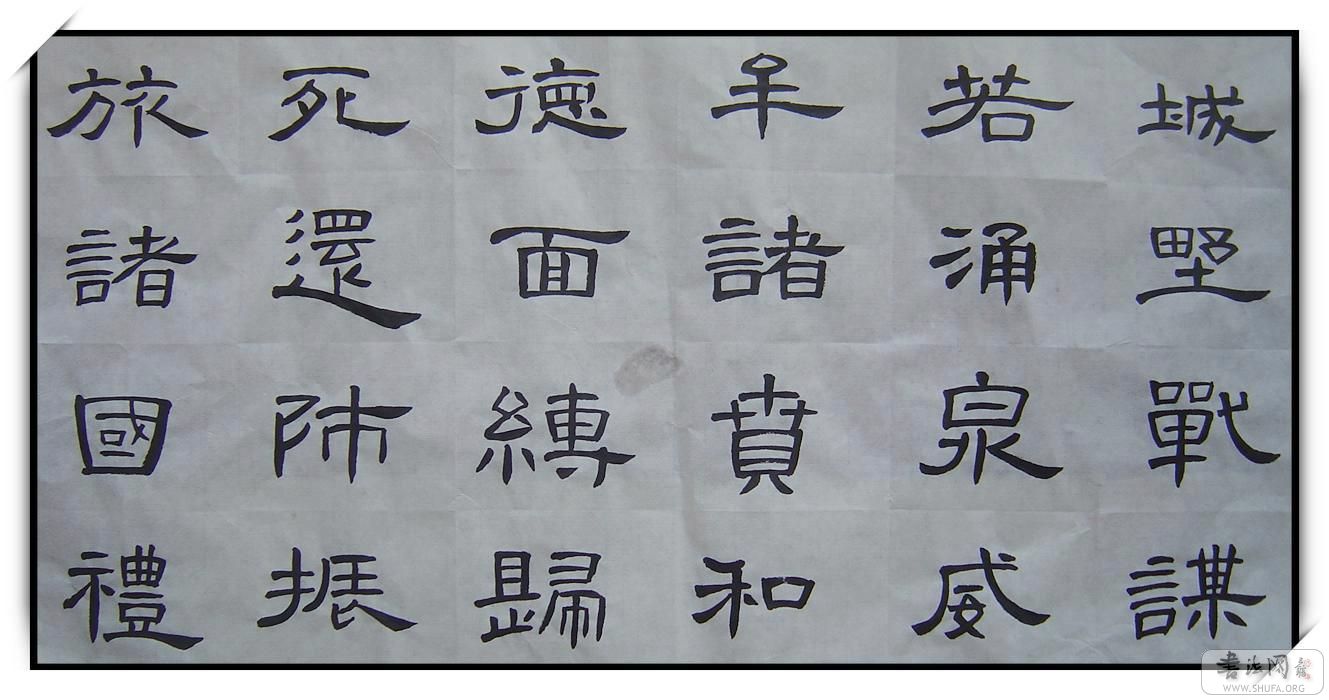 城野戰謀
若涌泉威
牟諸賁和
德面縛歸
死還師振
旅諸國禮
書法网
WWW.SHUFA.ORG